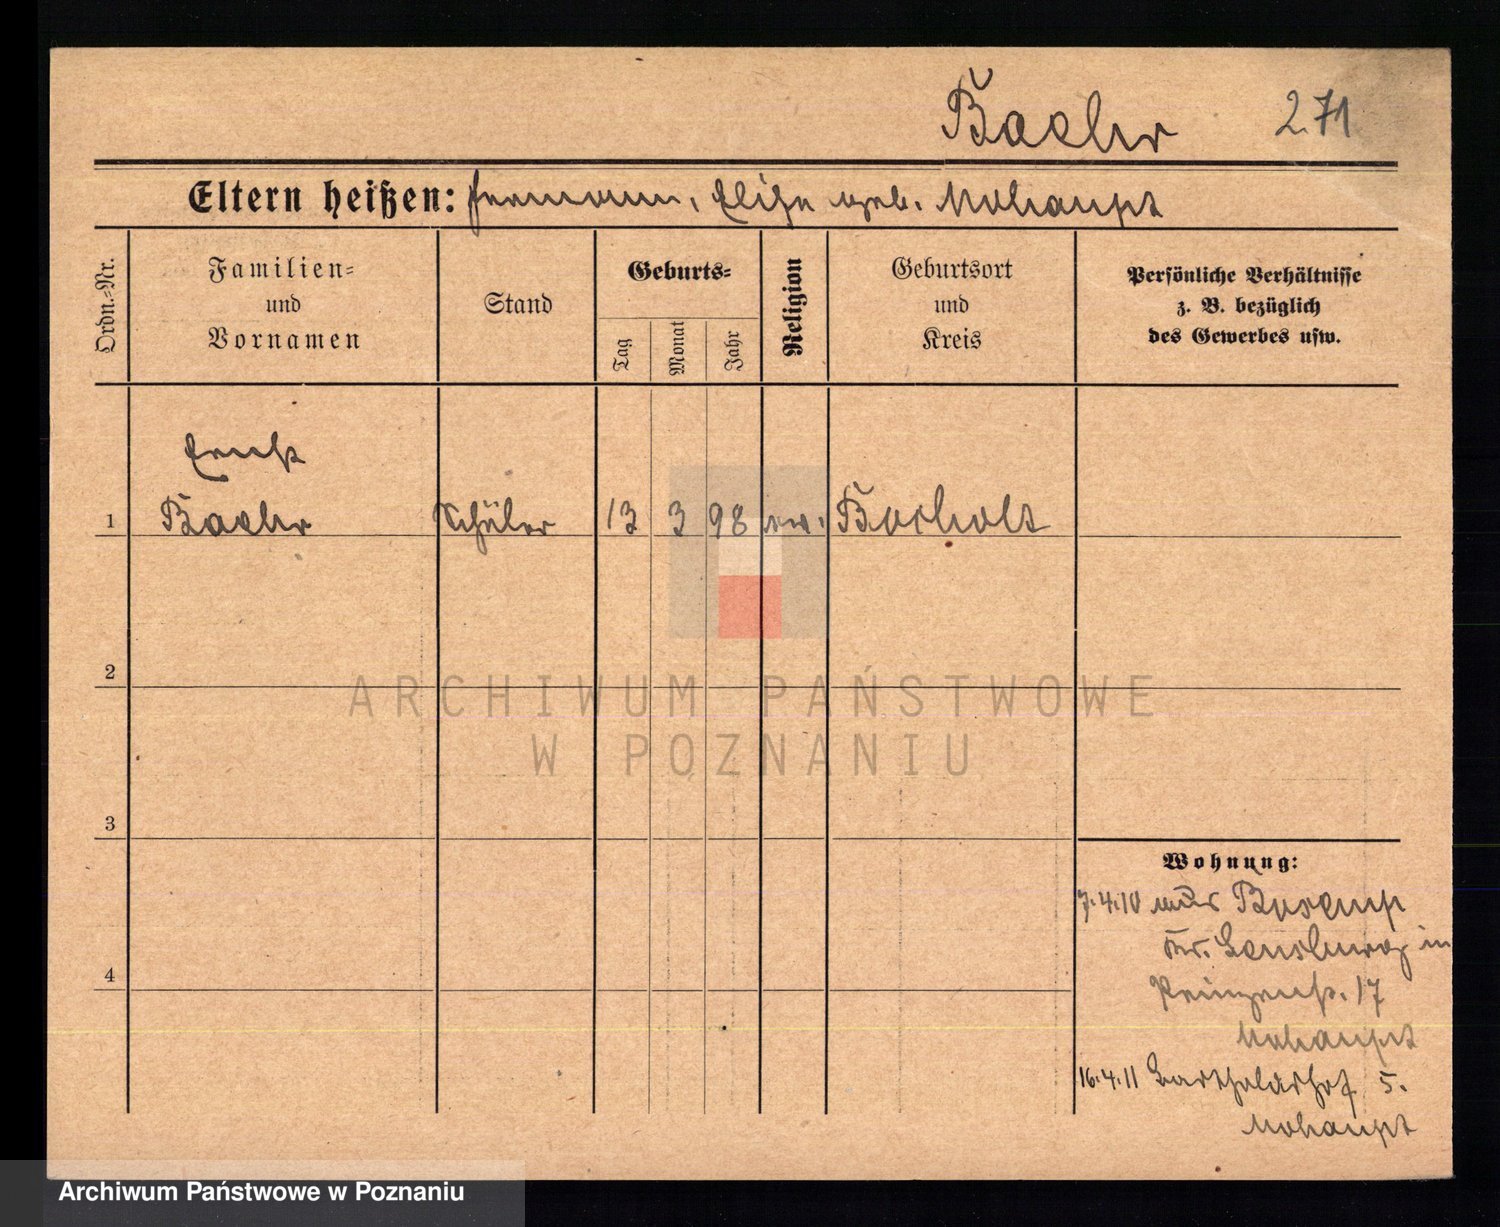 Baehr 271
Eltern heißen: Hermann, Elise geb. Mohaupt
Ordn.=Nr.
Familien=
und
Vornamen
Stand
Geburts=
Tag
Monat
Jahr
Religion
Geburtsort
und
Kreis
Persönliche Verhältnisse
z. B. bezüglich
des Gewerbes usw.
Ernst
1 Baehr Schüler 13 3 98 ev. Bocholt
2
3
4
Wohnung:
7.4.10 aus
Kr. Sensburg in
Prinzenstr. 17
Mohaupt
16.4.11 5.
Mohaupt
ARCHIWUM PAŃSTWOWE
W POZNANIU
Archiwum Państwowe w Poznaniu